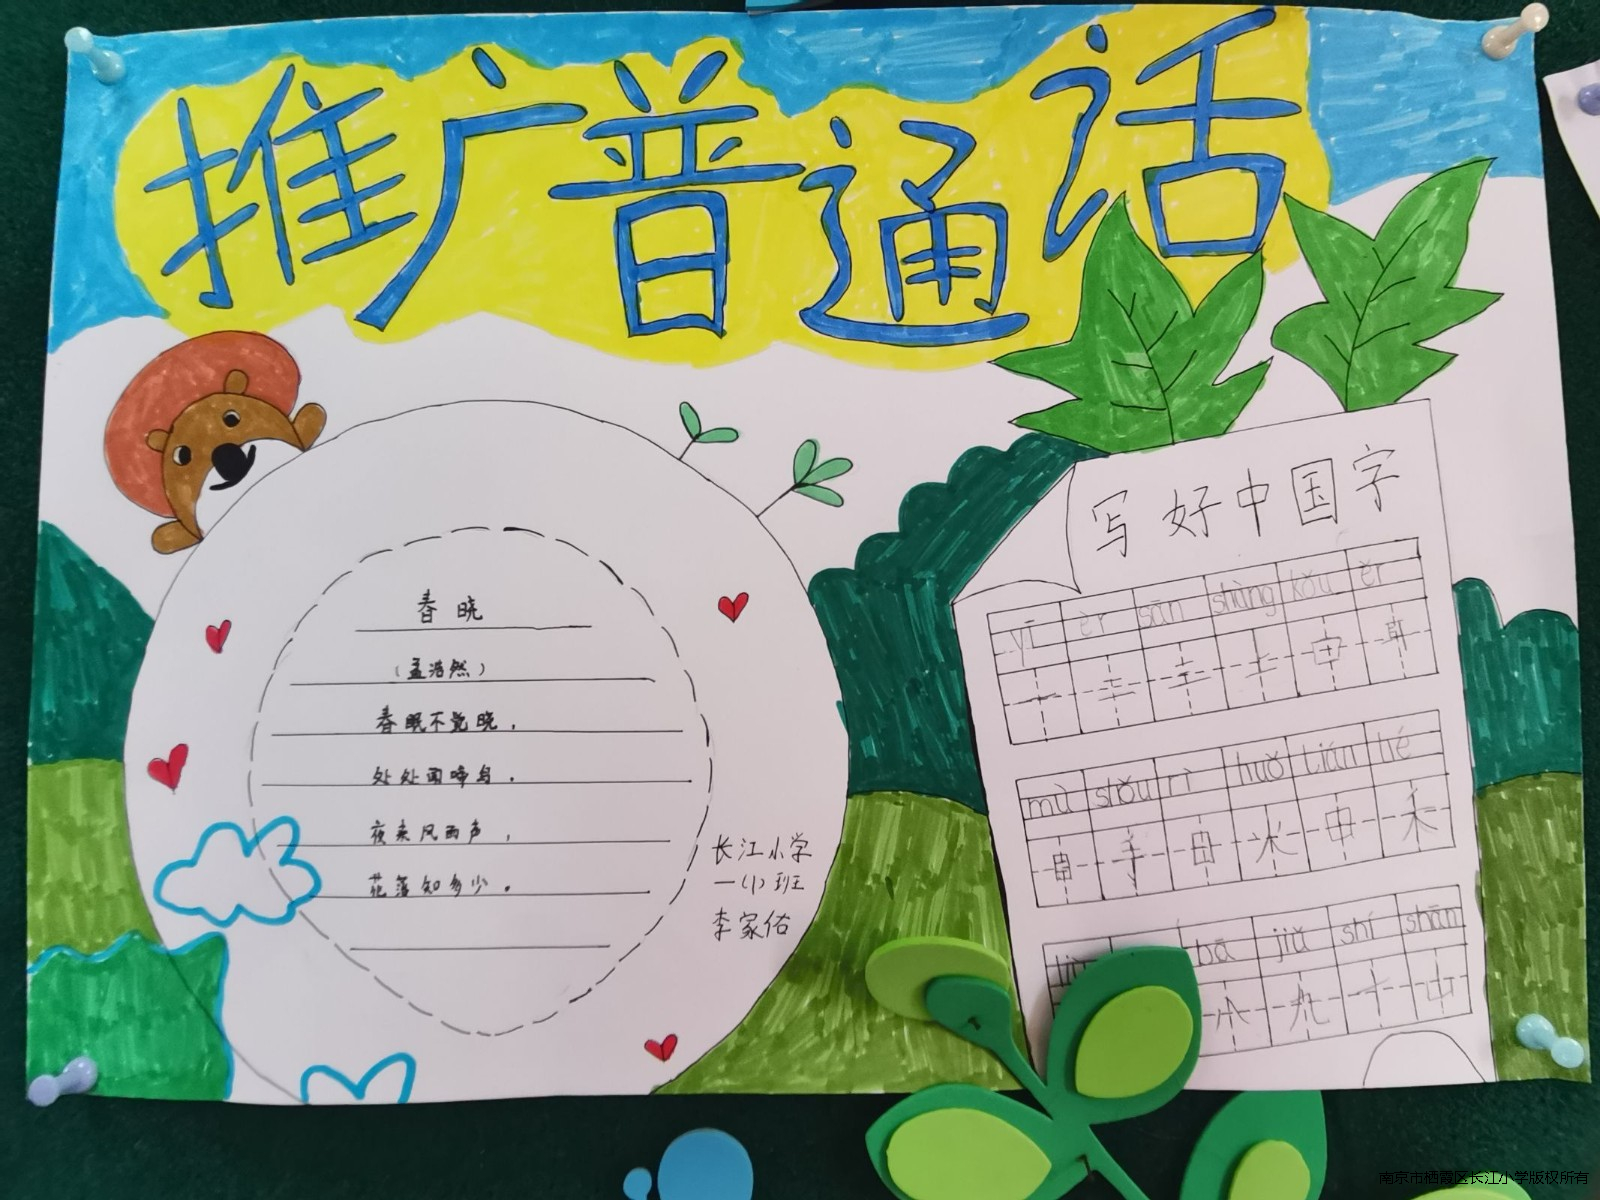 推广普通话
春晓
（孟浩然）
春眠不觉晓，
处处闻啼鸟。
夜来风雨声，
花落知多少。
长江小学
一（1）班
李家佑
写好中国字
yī èr sān shàng kǒu ěr
一 二 三 上 口 耳
mù shǒu rì huǒ tián hé
目 手 日 火 田 禾
bā jiǔ shí shān
八 九 十 山
南京市栖霞区长江小学版权所有